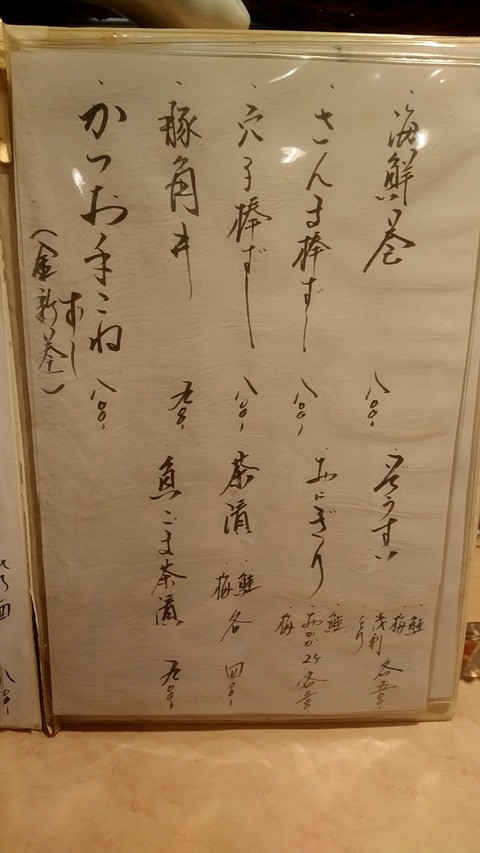 海鮮巻 八〇〇
ぞうすい 鮭 梅 浅利 とり 各五〇〇
さんま棒ずし 八〇〇
おにぎり 鮭 おかか 梅 2ケ 各五〇〇
穴子棒ずし 八〇〇
茶漬 鮭 梅 各四〇〇
豚角丼 九〇〇
魚ごま茶漬 九〇〇
かつお手こねずし 八〇〇
(金新巻)
酒 八〇〇